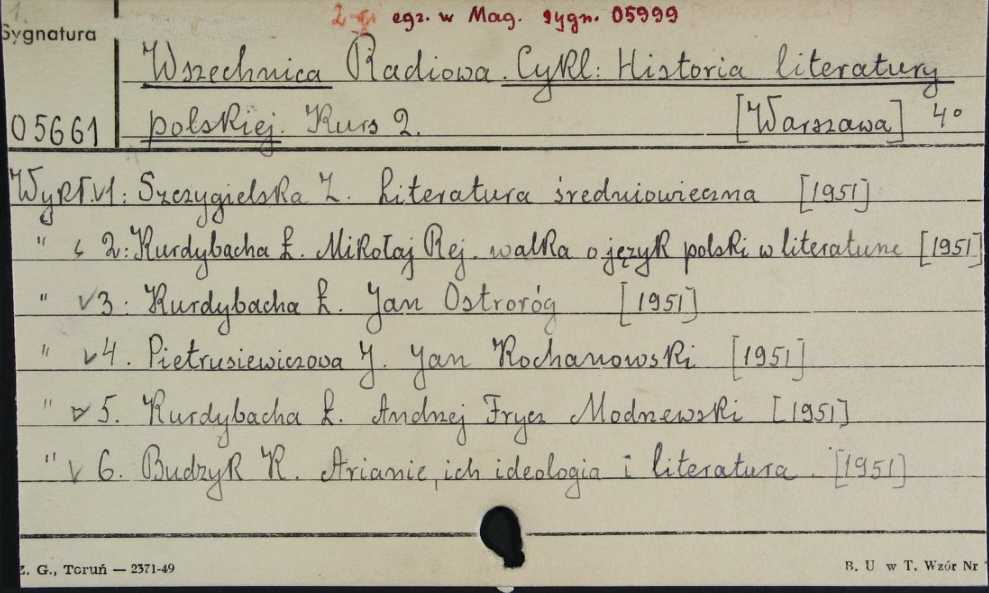 2-gi egz. w Mag. sygn. 05999
Sygnatura
Wszechnica Radiowa. Cykl: Historia literatury
05661
polskiej. Kurs 2. [Warszawa] 4°
Wykł. v1: Szczygielska Z. Literatura średniowieczna [1951]
" v 2: Kurdybacha Ł. Mikołaj Rej. walka o język polski w literaturze [1951]
" v 3: Kurdybacha Ł. Jan Ostroróg [1951]
" v 4. Pietrusiewiczowa J. Jan Kochanowski [1951]
" v 5. Kurdybacha Ł. Andrzej Frycz Modrzewski [1951]
" v 6. Budzyk K. Arianie, ich ideologia i literatura. [1951]
Z. G., Toruń — 2371-49
B. U w T. Wzór Nr